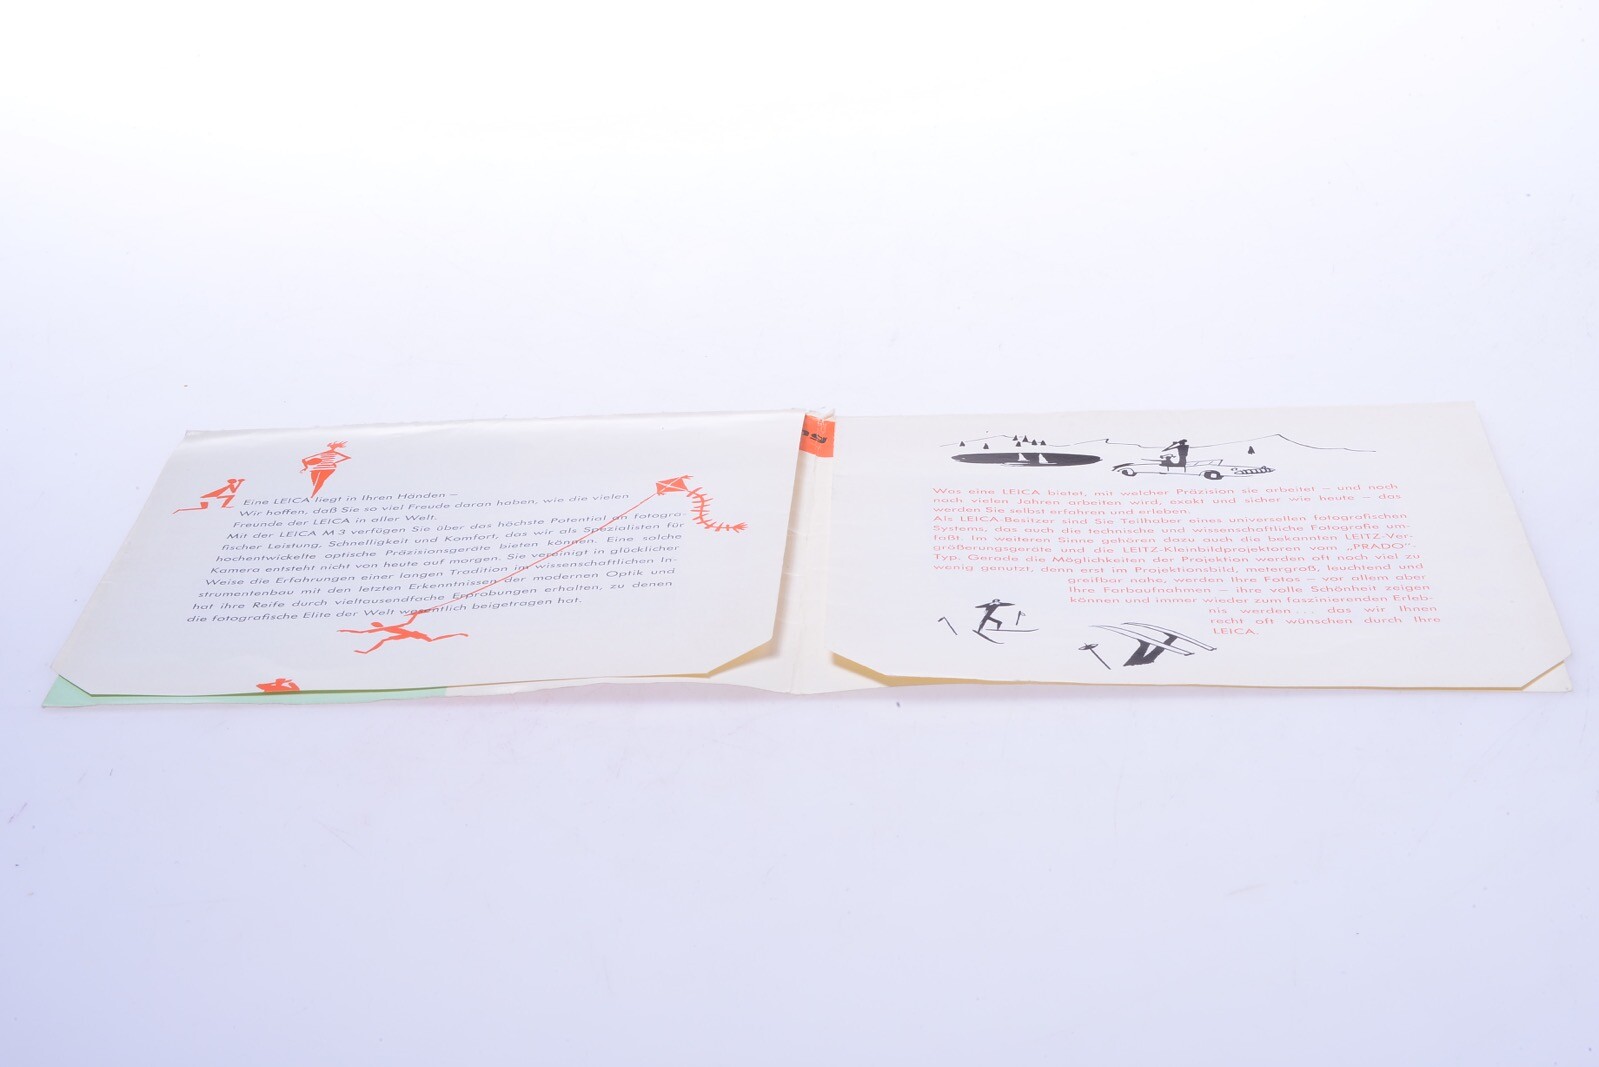 Eine LEICA liegt in Ihren Händen –
Wir hoffen, daß Sie so viel Freude daran haben, wie die vielen
Freunde der LEICA in aller Welt.
Mit der LEICA M 3 verfügen Sie über das höchste Potential an fotogra-
fischer Leistung, Schnelligkeit und Komfort, das wir als Spezialisten für
hochentwickelte optische Präzisionsgeräte bieten können. Eine solche
Kamera entsteht nicht von heute auf morgen. Sie vereinigt in glücklicher
Weise die Erfahrungen einer langen Tradition im wissenschaftlichen In-
strumentenbau mit den letzten Erkenntnissen der modernen Optik und
hat ihre Reife durch vieltausendfache Erprobungen erhalten, zu denen
die fotografische Elite der Welt wesentlich beigetragen hat.
Was eine LEICA bietet, mit welcher Präzision sie arbeitet – und noch
nach vielen Jahren arbeiten wird, exakt und sicher wie heute – das
werden Sie selbst erfahren und erleben.
Als LEICA-Besitzer sind Sie Teilhaber eines universellen fotografischen
Systems, das auch die technische und wissenschaftliche Fotografie um-
faßt. Im weiteren Sinne gehören dazu auch die bekannten LEITZ-Ver-
größerungsgeräte und die LEITZ-Kleinbildprojektoren vom „PRADO"-
Typ. Gerade die Möglichkeiten der Projektion werden oft noch viel zu
wenig genutzt, denn erst im Projektionsbild, metergroß, leuchtend und
greifbar nahe, werden Ihre Fotos – vor allem aber
Ihre Farbaufnahmen – ihre volle Schönheit zeigen
können und immer wieder zum faszinierenden Erleb-
nis werden ... das wir Ihnen
recht oft wünschen durch Ihre
LEICA.